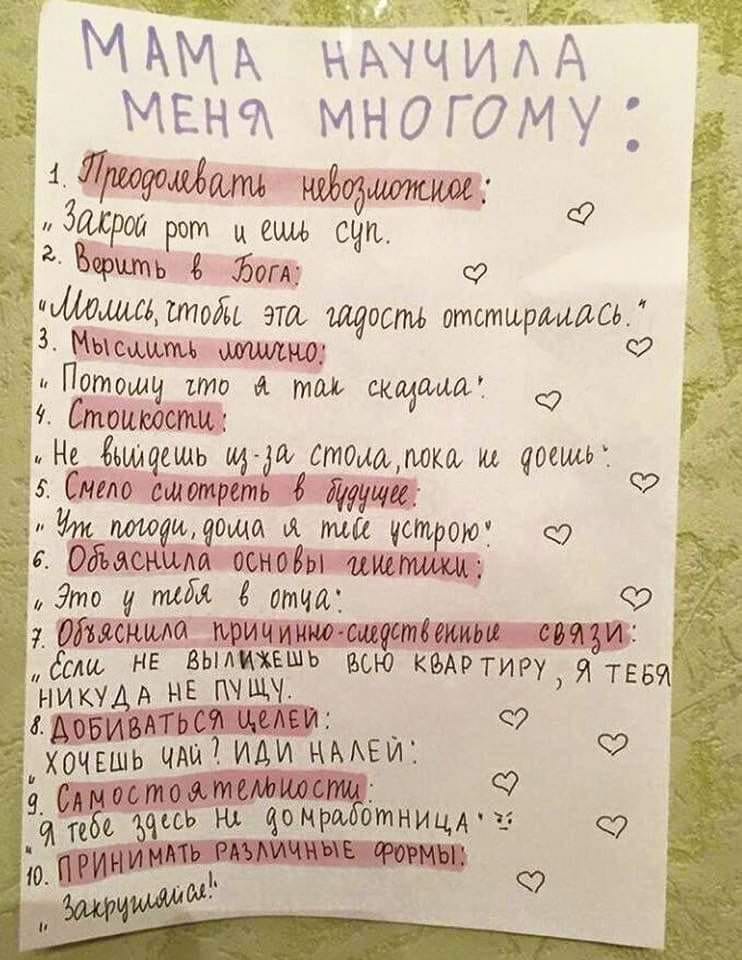 МАМА НАУЧИЛА
МЕНЯ МНОГОМУ:
1. Преодолевать невозможное:
„Закрой рот и ешь суп.
2. Верить в Бога:
"Молись, чтобы эта гадость отстиралась."
3. Мыслить логично:
„Потому что я так сказала"
4. Стоикости:
„Не выйдешь из-за стола, пока не доешь"
5. Смело смотреть в будущее:
„Уж погоди, дома я тебе устрою"
6. Объяснила основы генетики:
„Это у тебя в отца"
7. Объяснила причинно-следственные связи:
„Если НЕ ВЫЛИЖЕШЬ ВСЮ КВАРТИРУ, Я ТЕБЯ
НИКУДА НЕ ПУЩУ.
8. ДОБИВАТЬСЯ ЦЕЛЕЙ:
„ХОЧЕШЬ ЧАЙ? ИДИ НАЛЕЙ"
9. Самостоятельности:
"Я тебе здесь не домработница"
10. ПРИНИМАТЬ РАЗЛИЧНЫЕ ФОРМЫ:
„Закругляйся!"